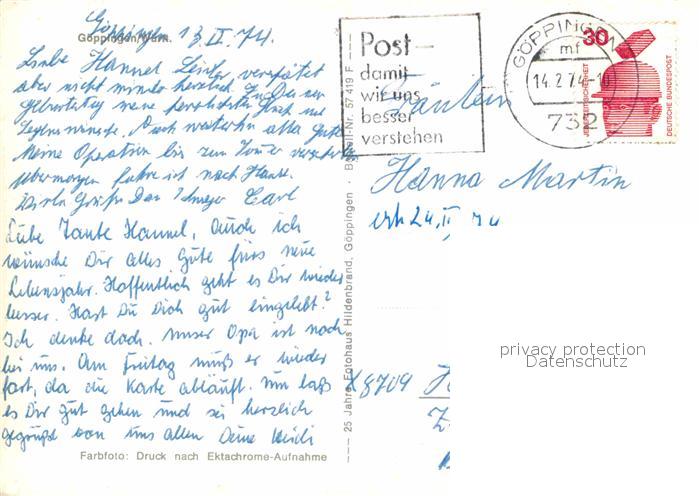 Göppingen 13.II.74
Göppingen/Württ.
Liebe Hannel Leider verspätet
aber nicht minder herzlich zu Deinem
Geburtstag meine herzlichsten Glück und
Segenswünsche. Auch weiterhin alles Gute
Meine Operation bis zum
Übermorgen fahre ich nach Hause.
Viele Grüße Dein Carl
Liebe Tante Hannel, auch ich
wünsche Dir alles Gute fürs neue
Lebensjahr. Hoffentlich geht es Dir wieder
besser. Hast Du Dich gut eingelebt?
Ich denke doch. Unser Opa ist noch
bei uns. Am Freitag muß er wieder
fort, da die Karte abläuft. Nun laß
es Dir gut gehen und sei herzlich
gegrüßt von uns allen Deine Heidi
Farbfoto: Druck nach Ektachrome-Aufnahme
25 Jahre Fotohaus Hildenbrand, Göppingen · Bestell-Nr. 57 419 F
Post-
damit
wir uns
besser
verstehen
GÖPPINGEN
mf
14.2.74-10
732
30
JEDERZEIT SICHERHEIT
DEUTSCHE BUNDESPOST
Fräulein
Hanna Martin
erh 24.II.74
X8709
privacy protection
Datenschutz